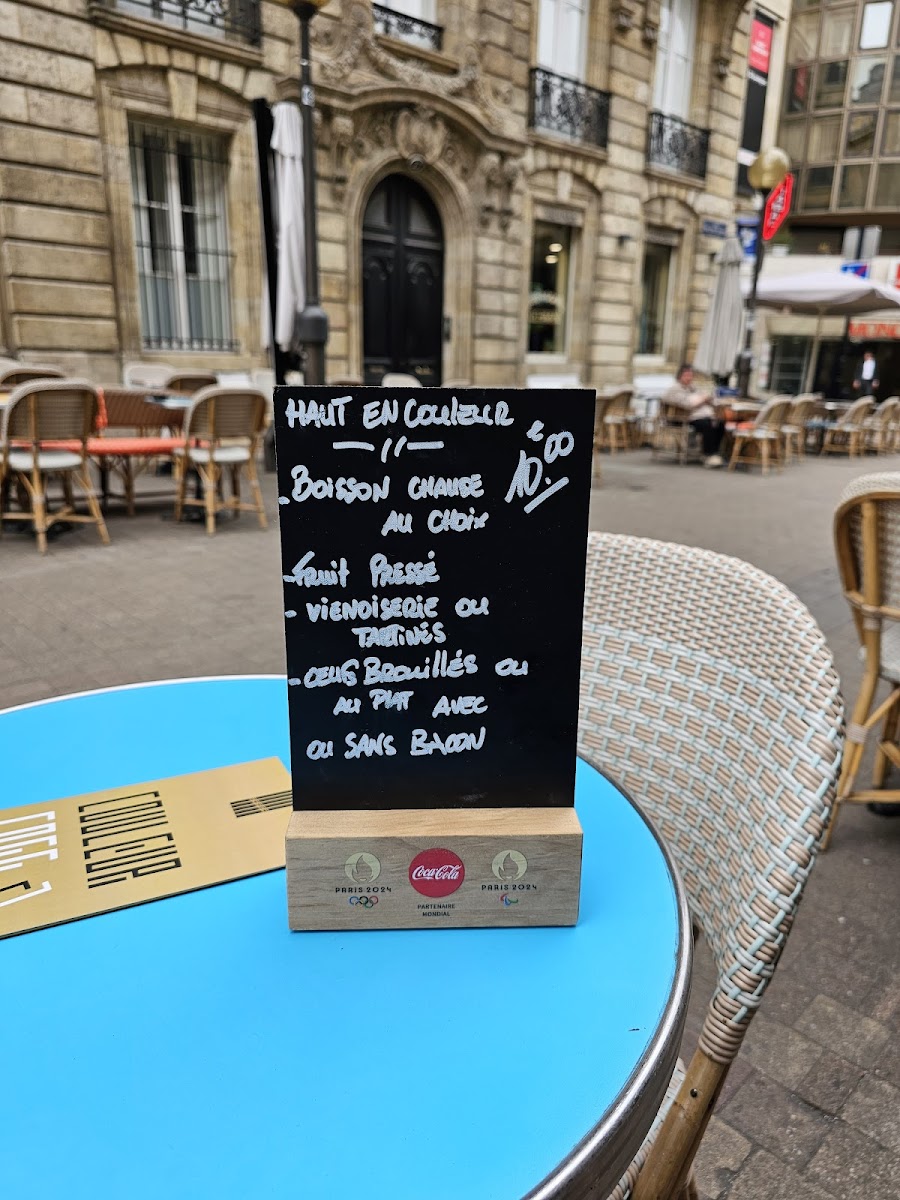 HAUT EN COULEUR
10.€00
- BOISSON CHAUDE
AU CHOIX
- FRUIT PRESSÉ
- VIENOISERIE OU
TARTINÉS
- ŒUFS BROUILLÉS OU
AU PLAT AVEC
OU SANS BACON
COULEUR
CAFÉ
PARIS 2024
Coca-Cola
PARTENAIRE
MONDIAL
PARIS 2024